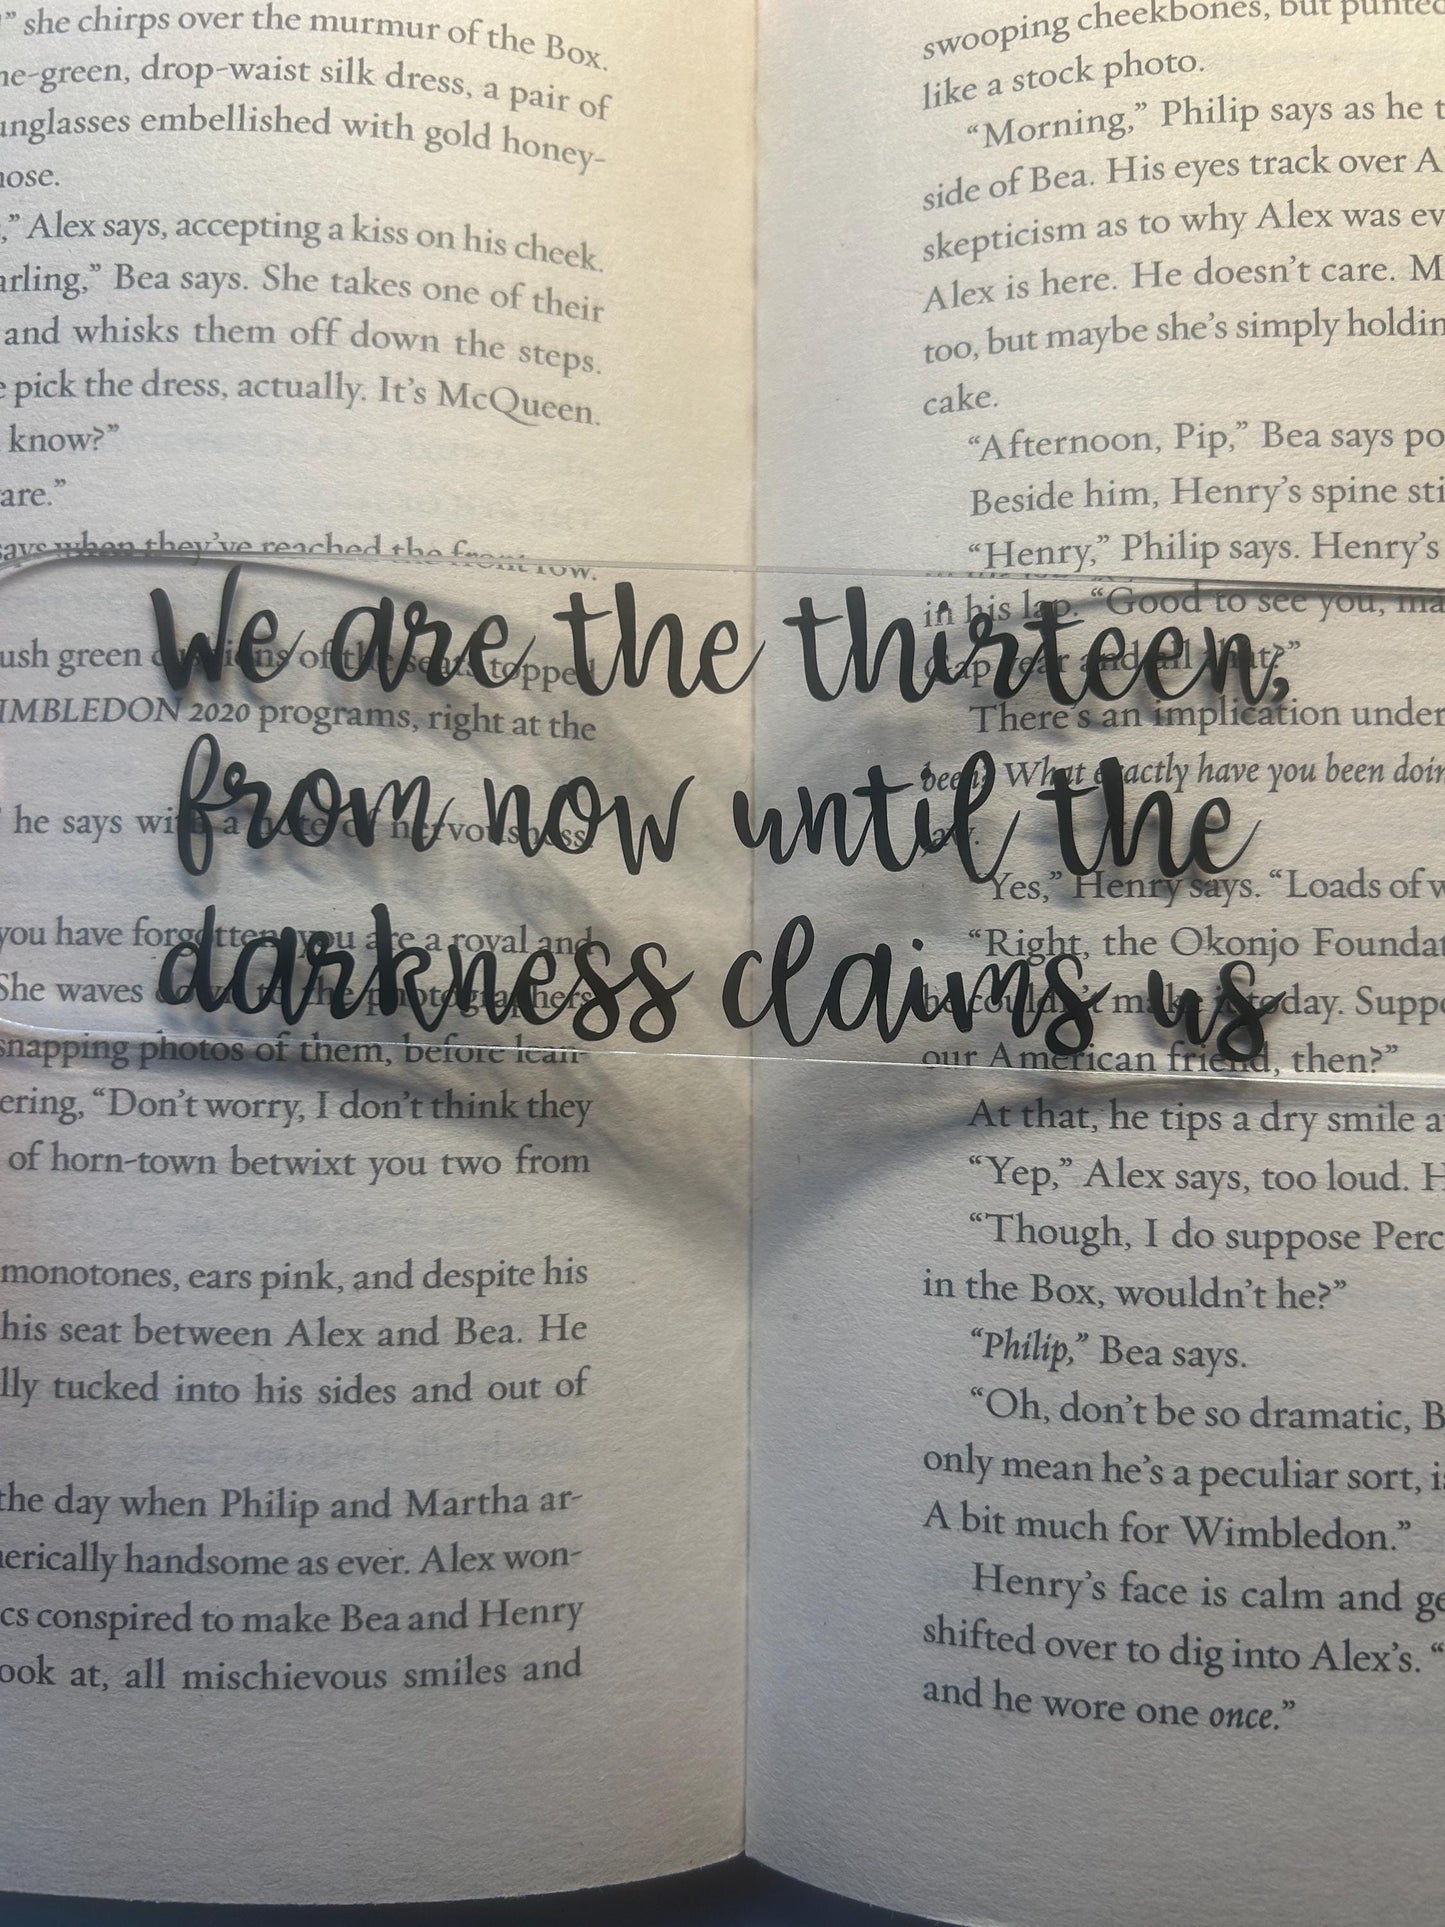 ” she chirps over the murmur of the Box.
-green, drop-waist silk dress, a pair of
embellished with gold honey-
,” Alex says, accepting a kiss on his cheek.
Bea says. She takes one of their
and whisks them off down the steps.
pick the dress, actually. It’s McQueen.
know?”
says when they’ve reached the front row.
green cushions of the seats topped
2020 programs, right at the
he says with a note of nervousness
you have forgotten, you are a royal and
She waves down to the photographers
snapping photos of them, before lean-
“Don’t worry, I don’t think they
of horn-town betwixt you two from
monotones, ears pink, and despite his
his seat between Alex and Bea. He
tucked into his sides and out of
the day when Philip and Martha ar-
handsome as ever. Alex won-
conspired to make Bea and Henry
at, all mischievous smiles and
We are the thirteen,
from now until the
darkness claims us
swooping cheekbones, but punted
like a stock photo.
“Morning,” Philip says as he
side of Bea. His eyes track over
skepticism as to why Alex was
Alex is here. He doesn’t care.
too, but maybe she’s simply
cake.
“Afternoon, Pip,” Bea says
Beside him, Henry’s spine
“Henry,” Philip says. Henry’s
in his lap. “Good to see you,
Gap year and all that?”
There’s an implication under
been? What exactly have you been
“Yes,” Henry says. “Loads of
“Right, the Okonjo
he couldn’t make it today.
our American friend, then?”
At that, he tips a dry smile
“Yep,” Alex says, too loud.
“Though, I do suppose
in the Box, wouldn’t he?”
“Philip,” Bea says.
“Oh, don’t be so dramatic,
only mean he’s a peculiar sort,
A bit much for Wimbledon.”
Henry’s face is calm and
shifted over to dig into Alex’s. “
and he wore one once.”